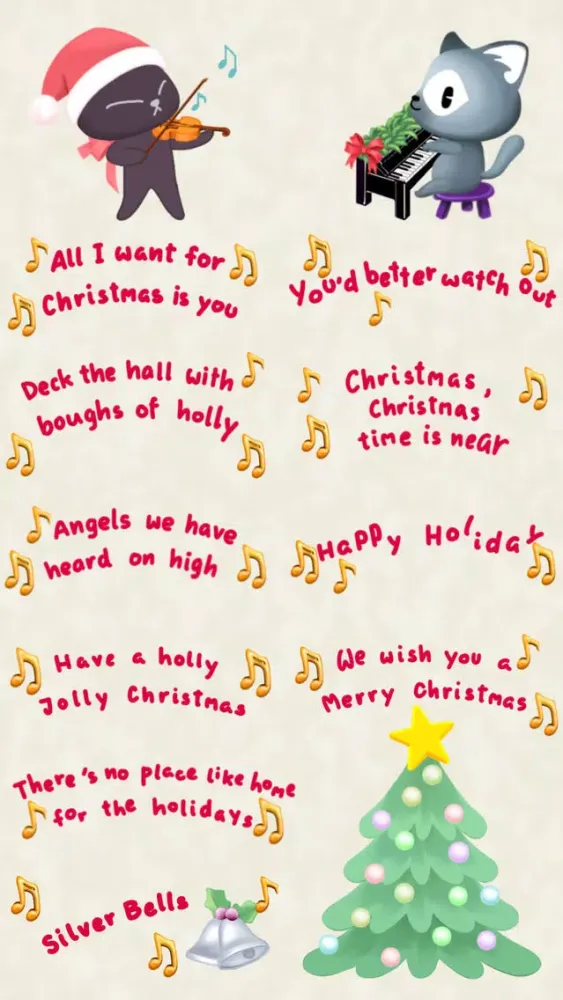 All I want for
Christmas is you
You'd better watch out
Deck the hall with
boughs of holly
Christmas,
Christmas
time is near
Angels we have
heard on high
Happy Holiday
Have a holly
Jolly Christmas
We wish you a
Merry Christmas
There's no place like home
for the holidays
Silver Bells